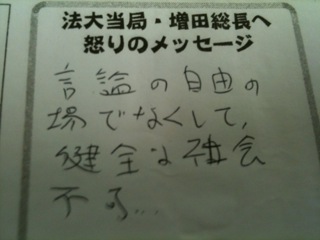 法大当局・増田総長へ
怒りのメッセージ
言論の自由の
場でなくして、
健全な社会
不可...